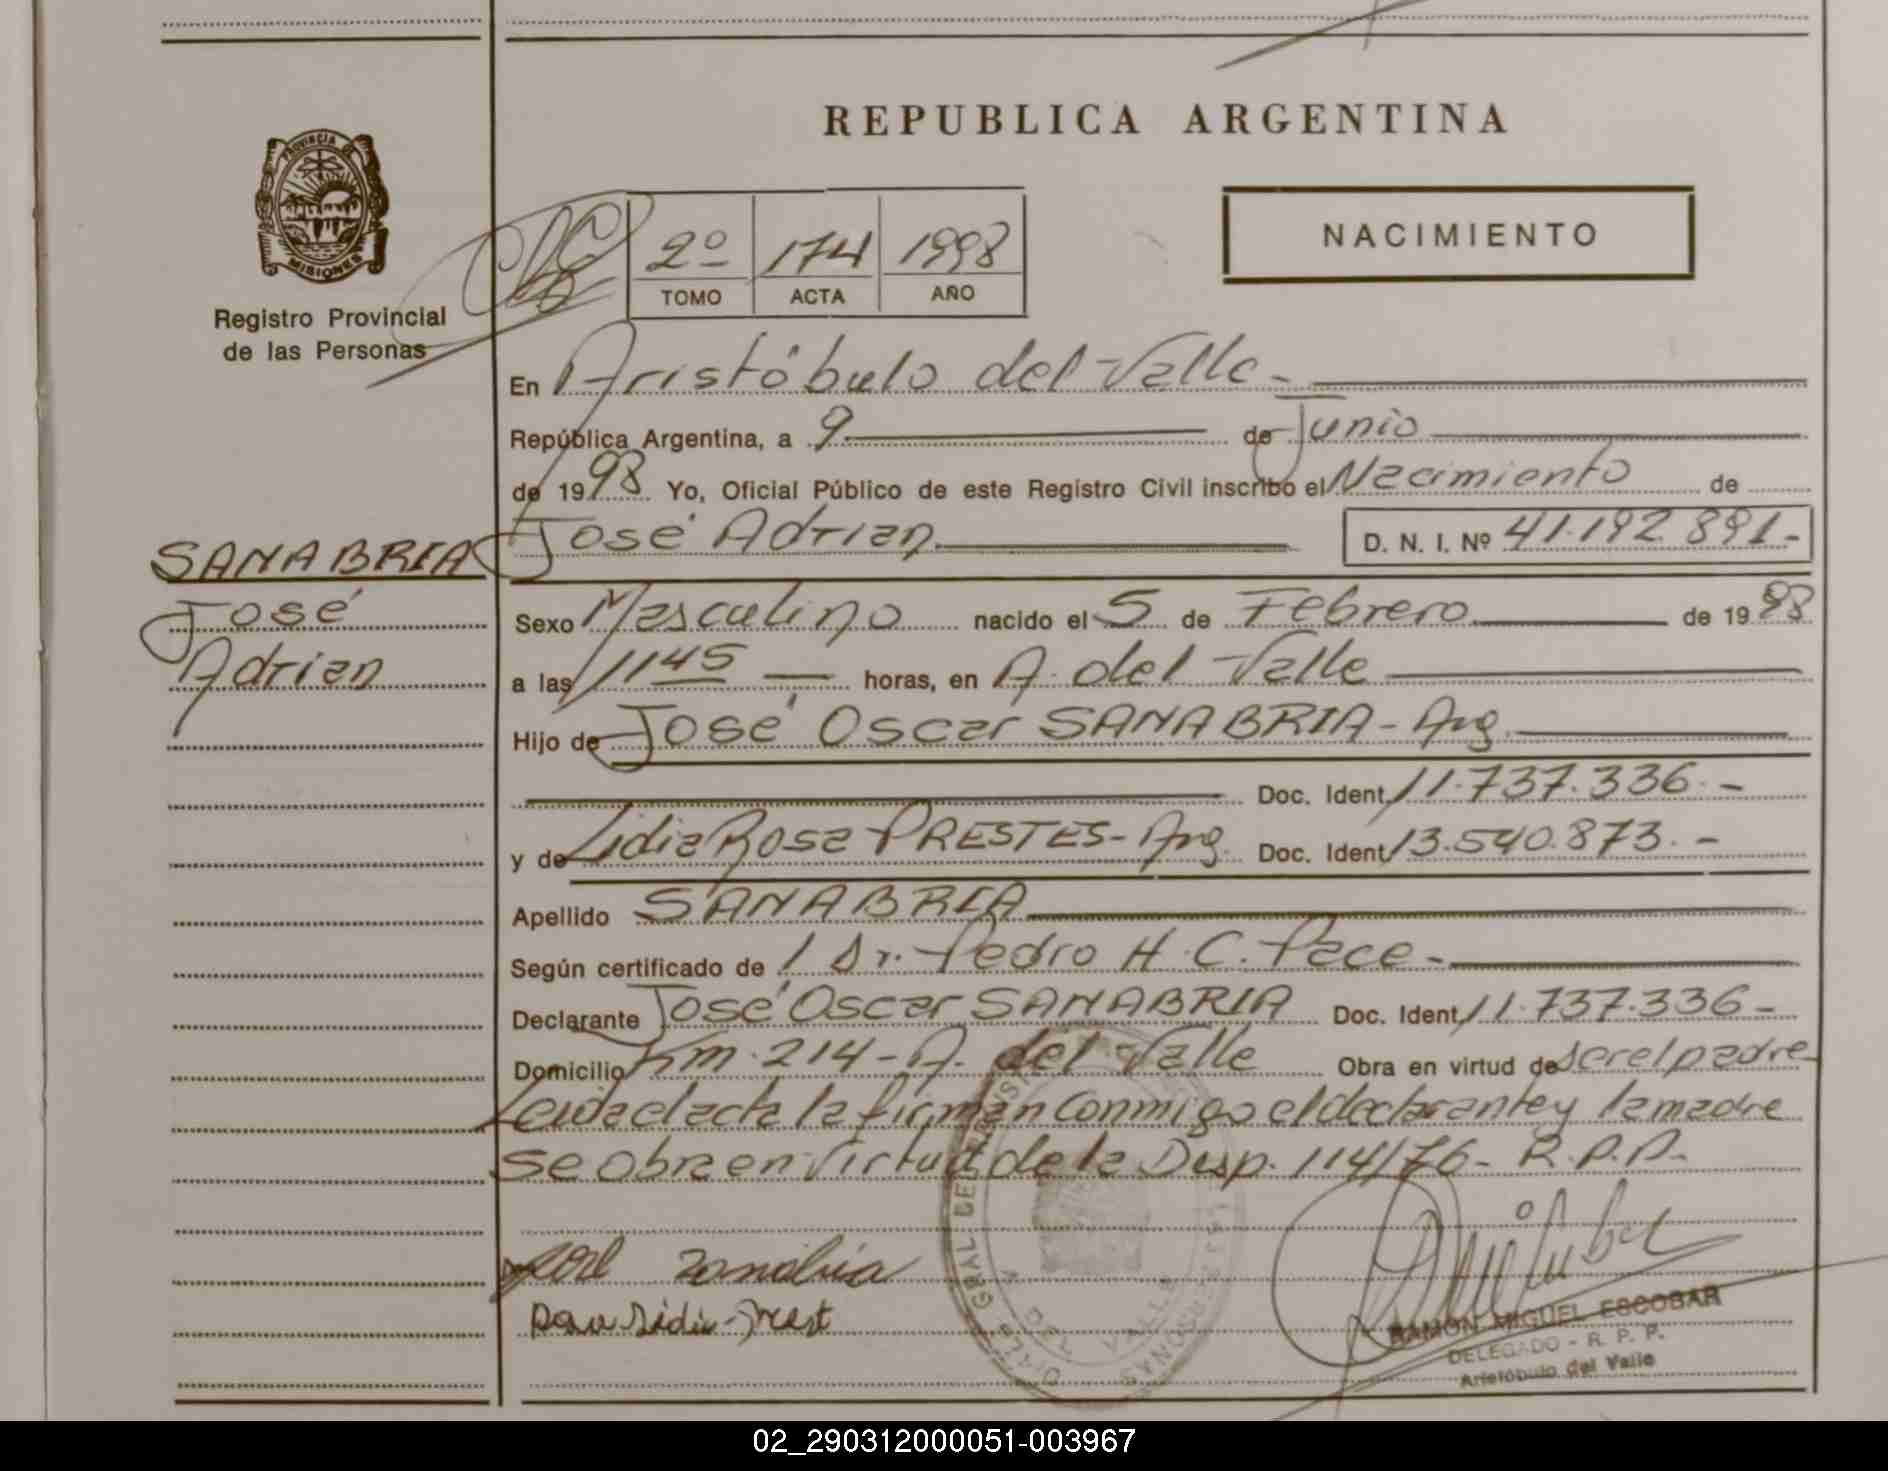 REPUBLICA ARGENTINA
PROVINCIA DE
MISIONES
Registro Provincial
de las Personas
2º 174 1998
TOMO ACTA AÑO
NACIMIENTO
En Aristóbulo del Valle-
República Argentina, a 9 de Junio
de 1998 Yo, Oficial Público de este Registro Civil inscribo el Nacimiento de
José Adrian D. N. I. Nº 41.192.891-
SANABRIA
José
Adrian
Sexo Masculino nacido el 5 de Febrero de 1998
a las 1145 horas, en A. del Valle
Hijo de José Oscar SANABRIA - Arg.
Doc. Ident. 11.737.336.-
y de Lidia Rosa PRESTES - Arg. Doc. Ident. 13.540.873.-
Apellido SANABRIA
Según certificado de 1 Dr. Pedro H. C. Pace-
Declarante José Oscar SANABRIA Doc. Ident. 11.737.336-
Domicilio Km. 214 - A. del Valle Obra en virtud de ser el padre
Leida el acta la firman conmigo el declarante y la madre
se obra en virtud de la Disp. 114/76- R.P.P.
RAMON MIGUEL ESCOBAR
DELEGADO - R. P. P.
Aristóbulo del Valle
02_290312000051-003967